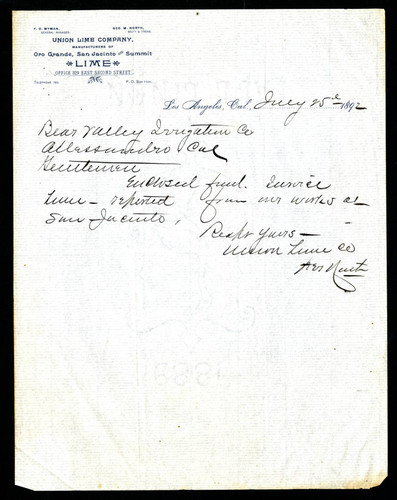 F. H. WYMAN,
GENERAL MANAGER.
GEO. W. NORTH,
SECY & TREAS.
UNION LIME COMPANY,
MANUFACTURERS OF
Oro Grande, San Jacinto and Summit
LIME
OFFICE 109 EAST SECOND STREET,
TELEPHONE NO.
P. O. BOX
Los Angeles, Cal., July 25th 1892
Bear Valley Irrigation Co
Allessandro Cal
Gentlemen
Enclosed find Invoice
Lime – reported from our works at
San Jacinto,
Respt Yours –
Union Lime Co